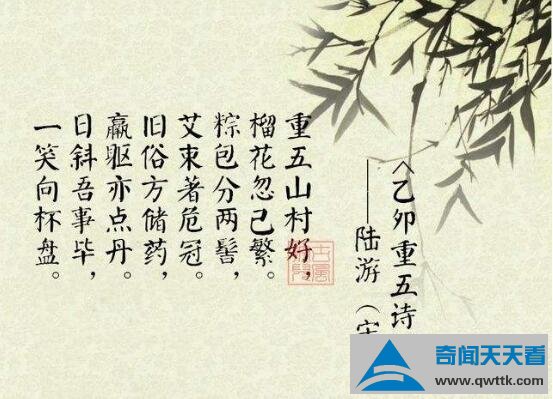 〈乙卯重五诗
——陆游（宋
重五山村好，
榴花忽已繁。
粽包分两髻，
艾束著危冠。
旧俗方储药，
羸躯亦点丹。
日斜吾事毕，
一笑向杯盘。
奇闻天天看
www.qwttk.com